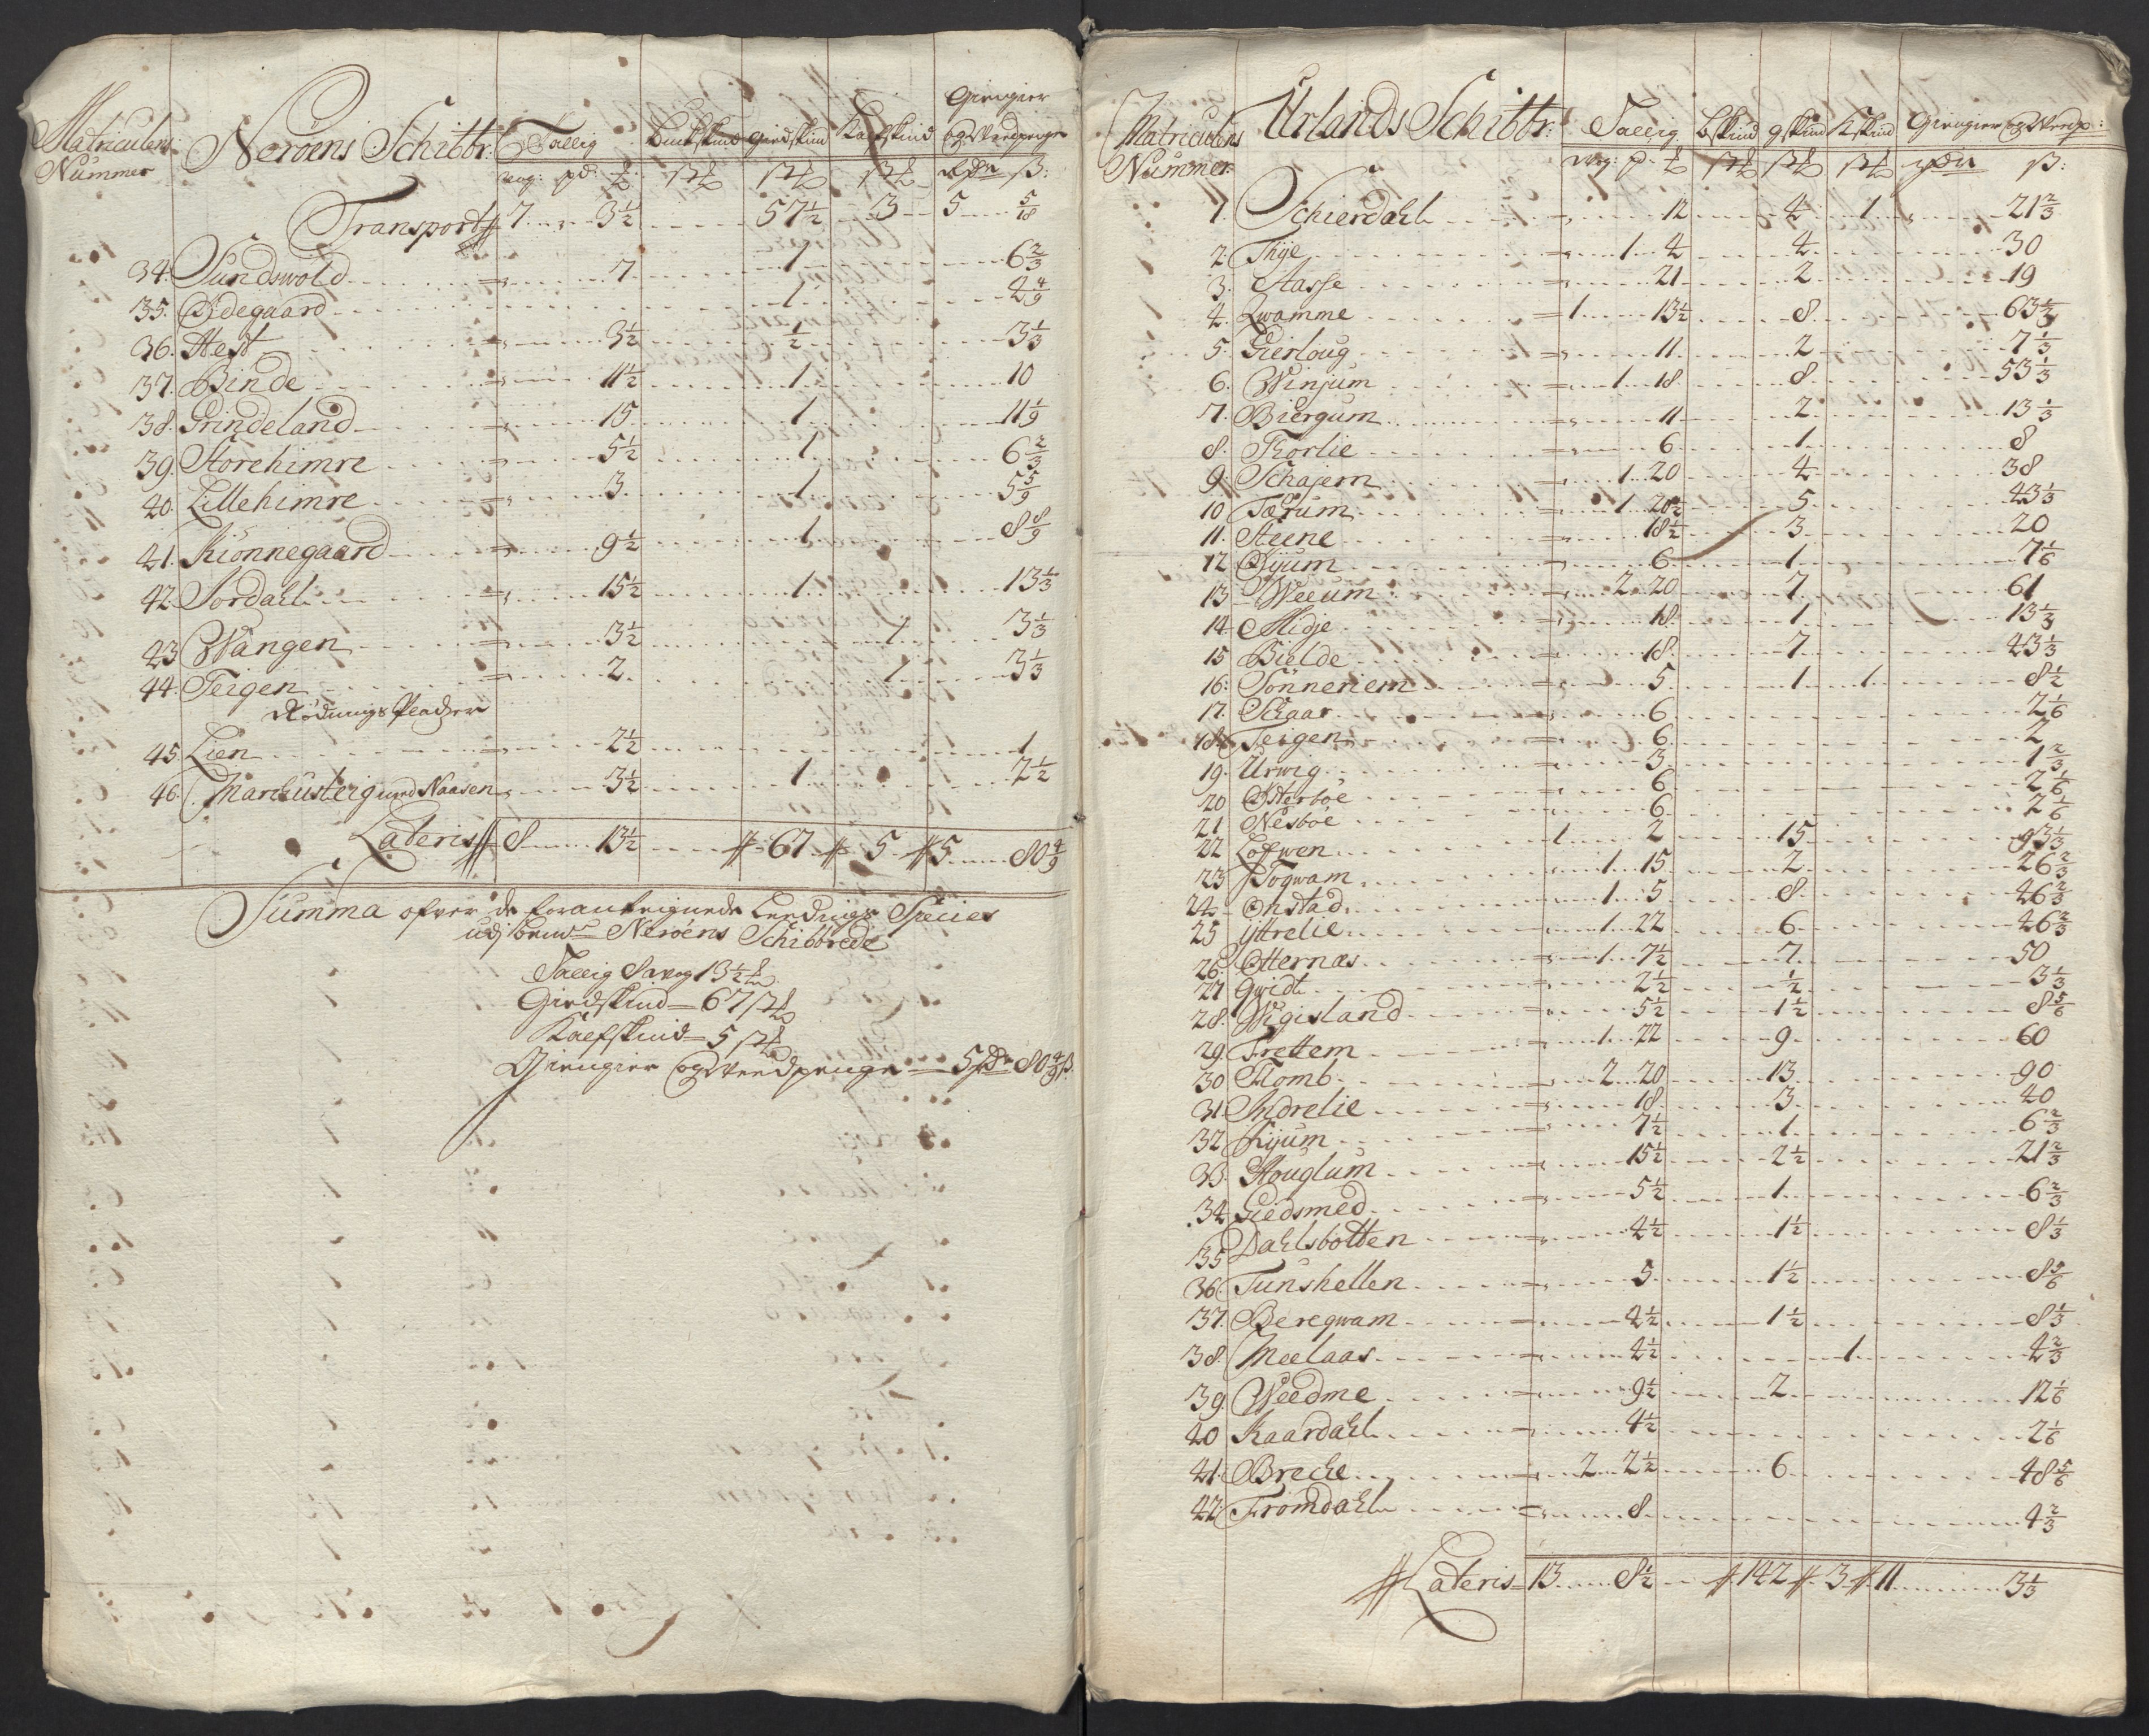 Matriculens Nummer Nerøens Schibbr: Tallig Buckskind Giedskind Kalfskind Giengier og Wedpenge
wog: pd: Rdr ß:
Transport 7 3½ 57½ 3 5 5/18
34. Sundswold 7 1 6⅔
35. Ødegaard 1 2 4/9
36. Hest 3½ ½ 3⅓
37. Binde 11½ 1 10
38. Grindeland 15 1 11 1/9
39. Storehimre 5½ 1 6⅔
40. Lillehimre 3 1 5 5/9
41. Kiønnegaard 9½ 1 8 8/9
42. Jordahl 15½ 1 13⅓
43 Wangen 3½ 1 3⅓
44. Teigen 2 1 3⅓
Rødnings Pladzer
45. Lien 2½ 1
46. Marchusteig und Naasen 3½ 1 2½
Lateris 8 13½ 67 5 5 80 4/9
Summa ofver de foranteignede Leedings Species
udj bemte Nerøens Schibbrede
Tallig 8 wog 13½
Giedskind 67
Kalfskind 5
Giengier og Wedpenge 5 Rdr 80 4/9 ß
Matriculens Nummer: Urlands Schibbr: Tallig Bskind gskind Kskind Giengier og Wedp:
wog: p. ß:
1. Schierdahl 12 4 1 21⅔
2. Thye 1 4 4 30
3. Aasse 21 2 19
4. Qwamme 1 13½ 8 63⅔
5. Gierloug 11 2 7⅓
6. Winjum 1 18 8 53⅓
7. Biergum 11 2 13⅓
8. Thorlie 6 1 8
9. Schajem 1 20 4 38
10 Tærum 1 20½ 5 43⅓
11. Steene 18½ 3 20
12 Ryum 6 1 7 1/6
13 Weeum 2 20 7 61
14 Midje 18 1 13⅓
15 Bielde 18 7 43⅓
16: Sønneriem 5 1 1 8½
17. Schaar 6 2 1/6
18 Teigen 6 2
19. Urwig 3 1⅔
20 Østerbøe 6 2 1/6
21 Nesbøe 6 2 1/6
22 Lofwen 1 2 15 93⅓
23 Togwam 1 15 2 26⅔
24 Onstad 1 5 8 46⅔
25 Yttrelie 1 22 6 46⅔
26. Otternæs 1 7½ 7 50
27 Gwidt 2½ ½ 3⅓
28. Wigisland 5½ 1½ 8 5/6
29. Frettem 1 22 9 60
30 Flomb 2 20 13 90
31. Indrelie 18 3 40
32 Ryum 7½ 1 6⅔
33. Houglum 15½ 2½ 21⅔
34 Giedsmed 5½ 1 6⅔
35 Dahlsbotten 4½ 1½ 8⅓
36. Tunshellen 5 1½ 8 5/6
37. Bereqwam 4½ 1½ 8⅓
38. Meelaas 4½ 1 4⅔
39. Weedme 9½ 2 12 1/6
40 Kaardahl 4½ 2 1/6
41. Breche 2 2½ 6 48 5/6
42. Frømdahl 8 4⅔
Lateris 13 8½ 142 3 11 3⅓